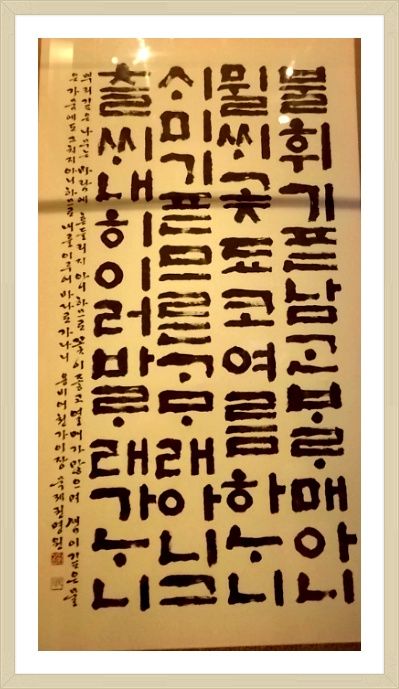 불휘기픈남ᄀᆞᆫᄇᆞᄅᆞ매아니
뮐ᄊᆡ곶됴코여름하ᄂᆞ니
ᄉᆡ미기픈므른ᄀᆞᄆᆞ래아니그
츨ᄊᆡ내히이러바ᄅᆞ래가ᄂᆞ니
뿌리깊은 나무는 바람에 흔들리지 아니하므로 꽃이 좋고 열매가 많으며 샘이 깊은 물
은 가뭄에도 그치지 아니하므로 내를 이루어 바다로 가나니 용비어천가 이장